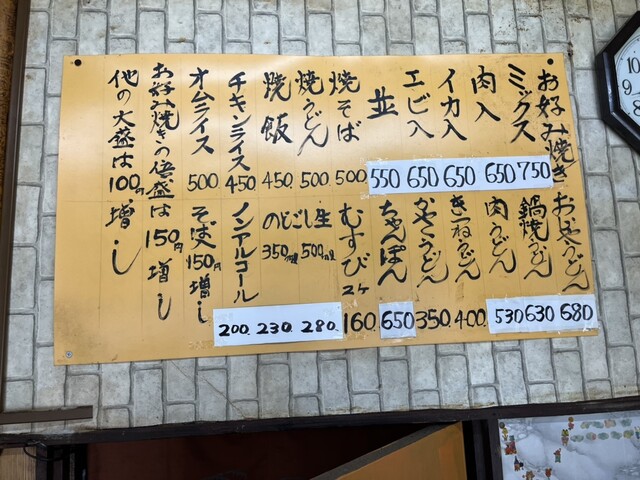 お好み焼き
ミックス 750
肉入 650
イカ入 650
エビ入 650
並 550
焼そば 500
焼うどん 500
焼飯 450
チキンライス 450
オムライス 500
お好み焼きの倍盛は150円増し
他の大盛は100円増し
うどん 680
鍋焼うどん 630
肉うどん 530
きつねうどん 400
かやくうどん 350
ちゃんぽん 650
むすび2ケ 160
のどごし生
500ml 280
350ml 230
ノンアルコール 200
そば入150円増し
10
9
8